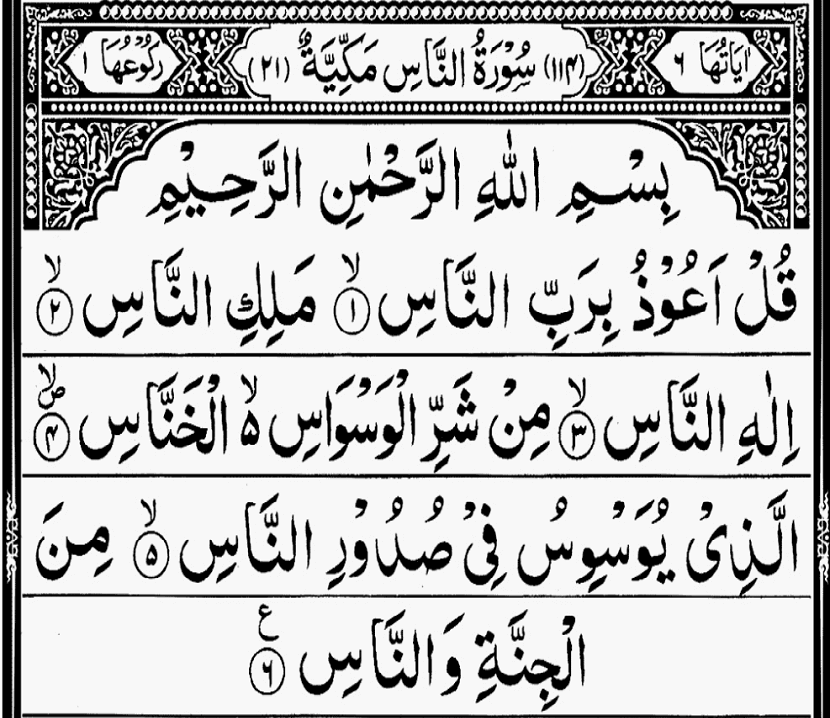 اٰیَاتُهَا ۶ (۱۱۴) سُوْرَةُ النَّاسِ مَکِّیَّةٌ (۲۱) رُکُوْعُهَا ۱
بِسْمِ اللّٰهِ الرَّحْمٰنِ الرَّحِیْمِ
قُلْ اَعُوْذُ بِرَبِّ النَّاسِ ۙ﴿۱﴾ مَلِكِ النَّاسِ ۙ﴿۲﴾
اِلٰهِ النَّاسِ ۙ﴿۳﴾ مِنْ شَرِّ الْوَسْوَاسِ ۙ۵ الْخَنَّاسِ ۪ۙۖ﴿۴﴾
الَّذِیْ یُوَسْوِسُ فِیْ صُدُوْرِ النَّاسِ ۙ﴿۵﴾ مِنَ
الْجِنَّةِ وَالنَّاسِ ع﴿۶﴾